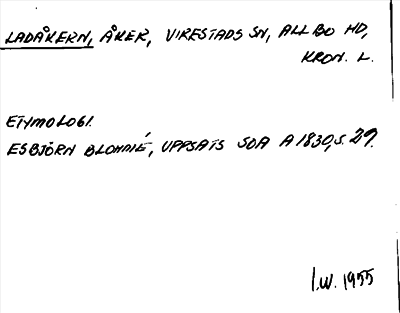 LADÅKERN, ÅKER, VIRESTADS SN, ALLBO HD,
KRON. L.
ETYMOLOGI.
ESBJÖRN BLOHMÉ, UPPSATS SOA A 1830, S. 29.
I.W. 1955